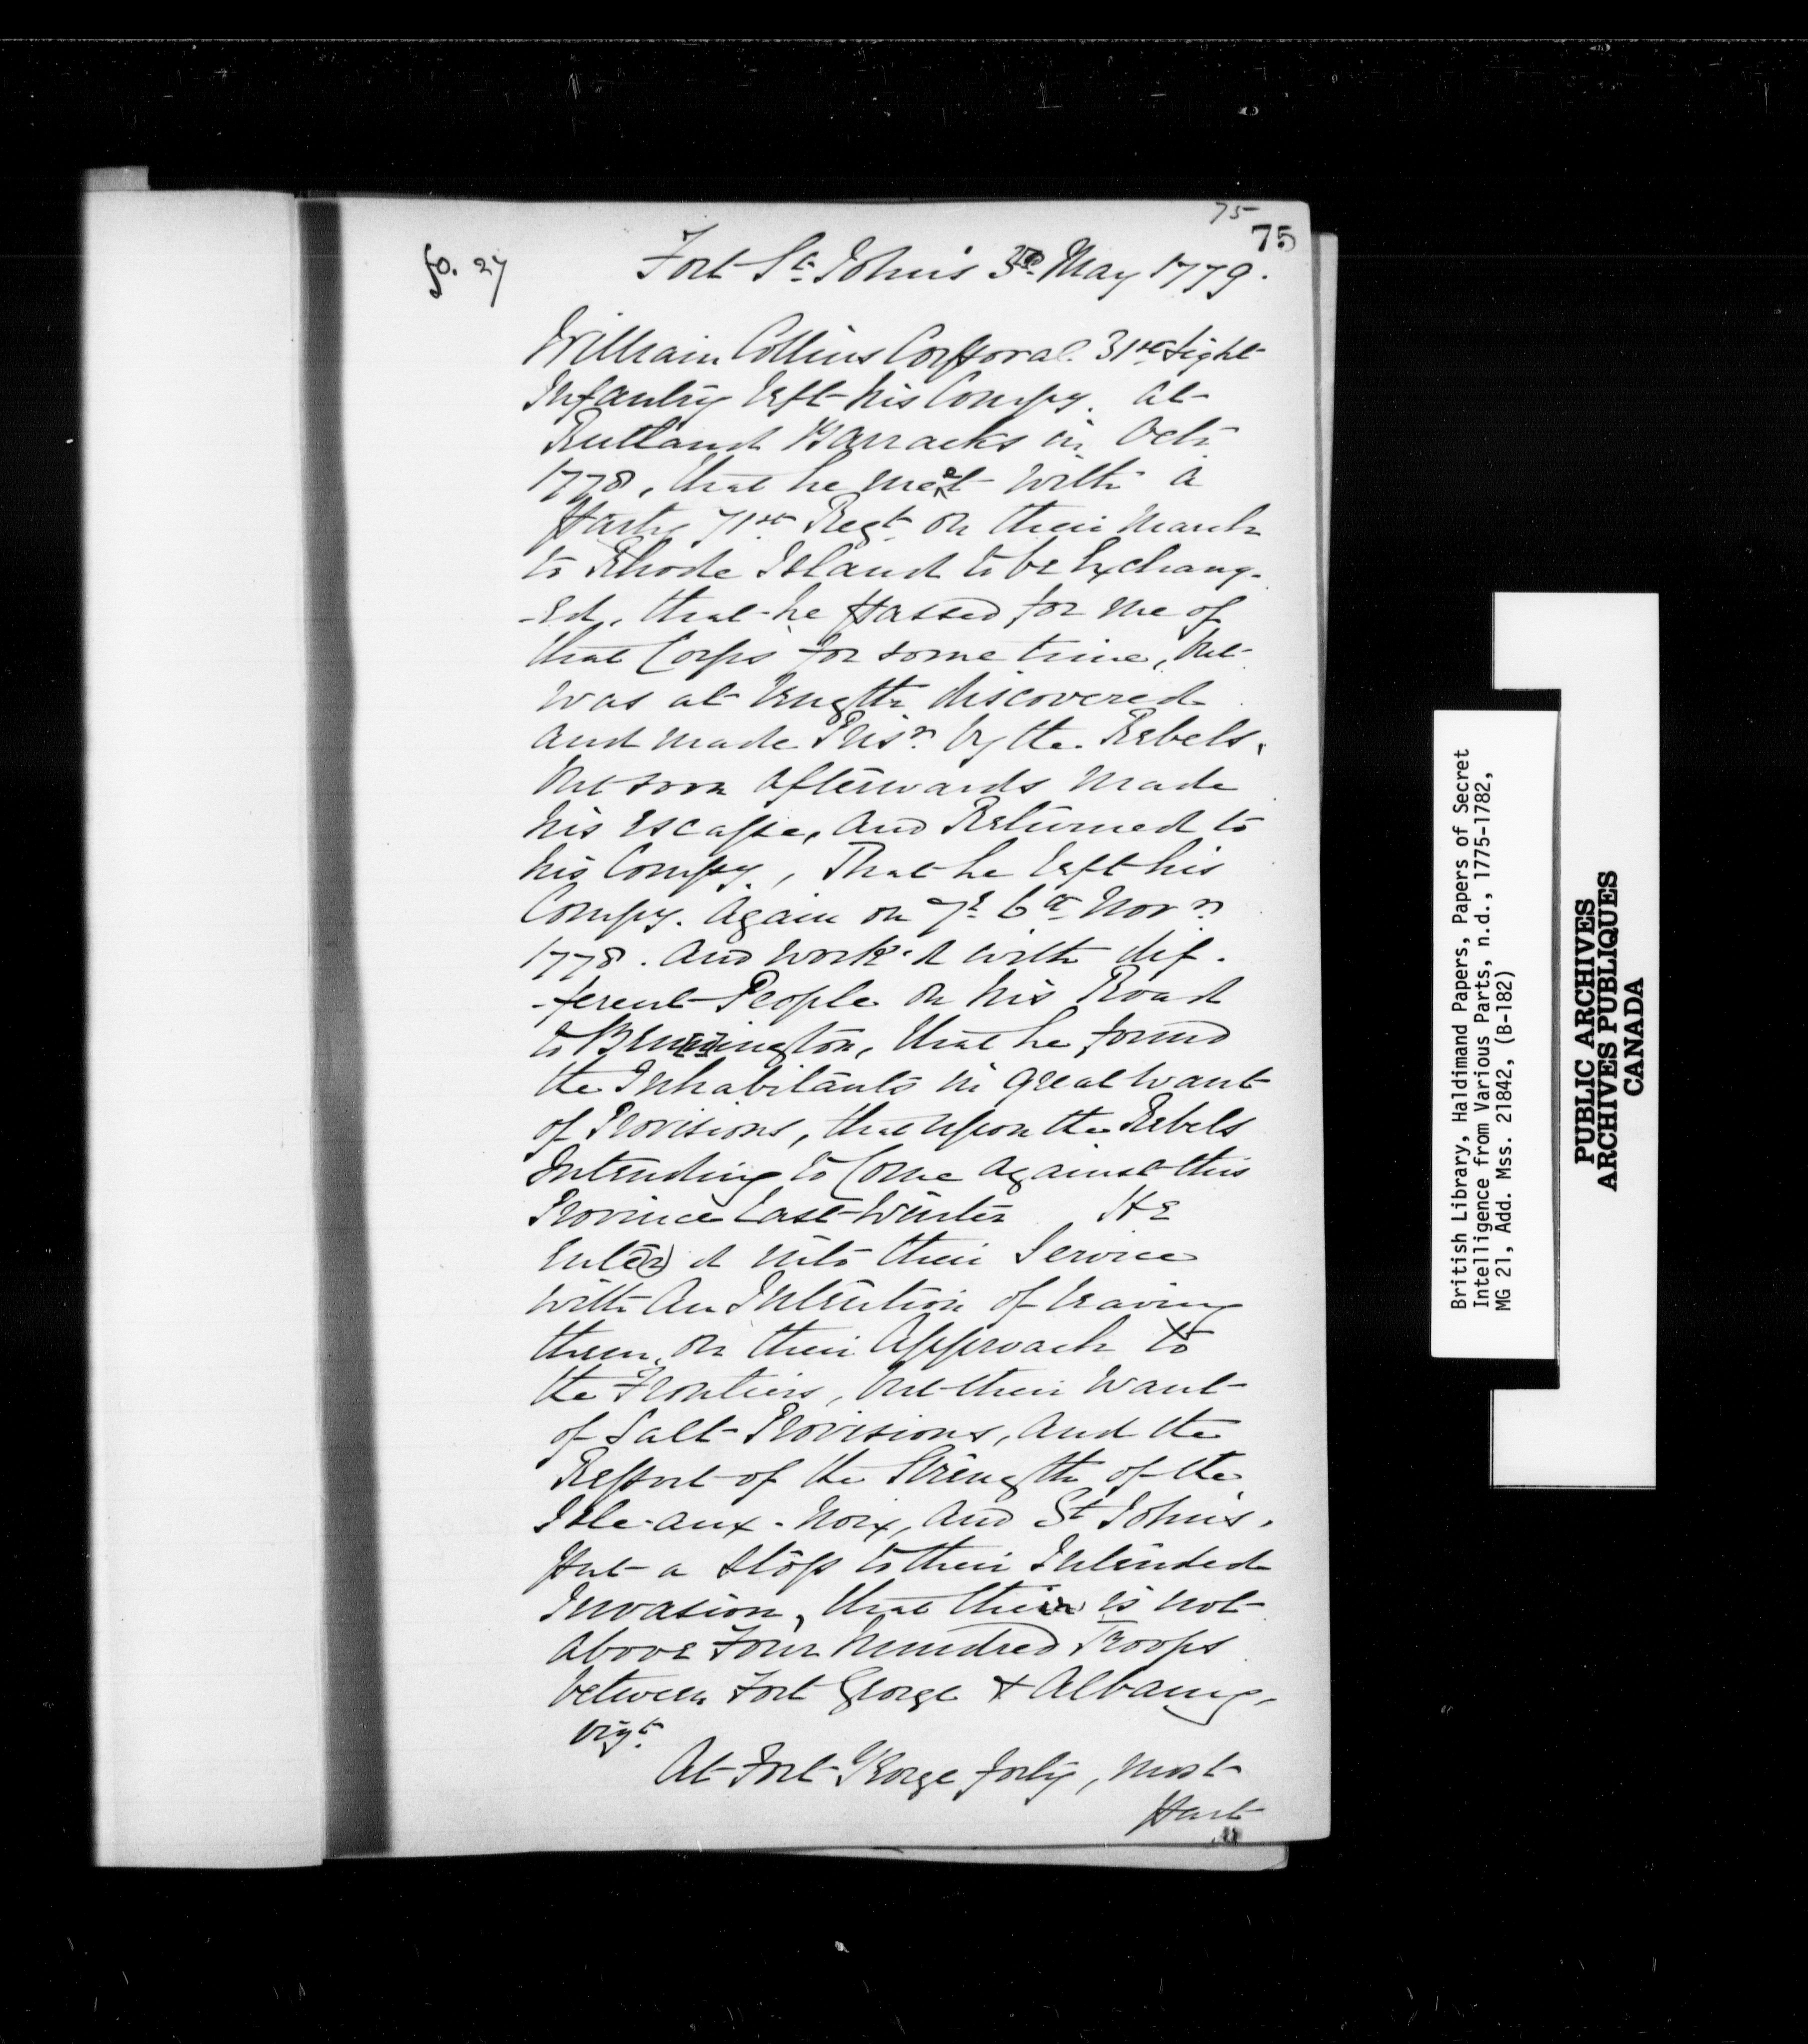 75
75
fo. 27
Fort St. John's 3rd May 1779.
William Collins Corporal 31st Light
Infantry left his Compy. at
Rutland Barracks in Octr
1778, that he met with a
Party 71st Regt. on their March
to Rhode Island to be Exchang-
-ed, that he passed for one of
that Corps for some time, but
was at length discovered
and made Prisr. by the Rebels,
but soon afterwards made
his escape, and Returned to
his Compy., That he left his
Compy. again on ye. 6th Novr.
1778. and work'd with dif-
-ferent People on his Road
to Bennington, that he found
the Inhabitants in great want
of Provisions, that upon the Rebels
Intending to Come against this
Province Last Winter He
Enter'd into their Service
with An Intention of leaving
them, on their Approach to
the Frontiers, but their want
of Salt Provisions, and the
Report of the Strength of the
Isle-aux-Noix, and St John's,
put a stop to their Intended
Invasion, that their is not
above Four hundred Troops
between Fort George & Albany,
vizt.
At Fort George forty, most
part
British Library, Haldimand Papers, Papers of Secret
Intelligence from Various Parts, n.d., 1775-1782,
MG 21, Add. Mss. 21842, (B-182)
PUBLIC ARCHIVES
ARCHIVES PUBLIQUES
CANADA